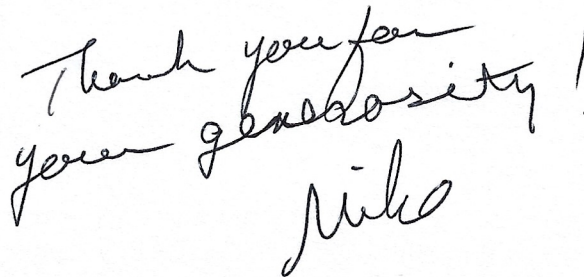 Thank you for
your generosity!
Niko